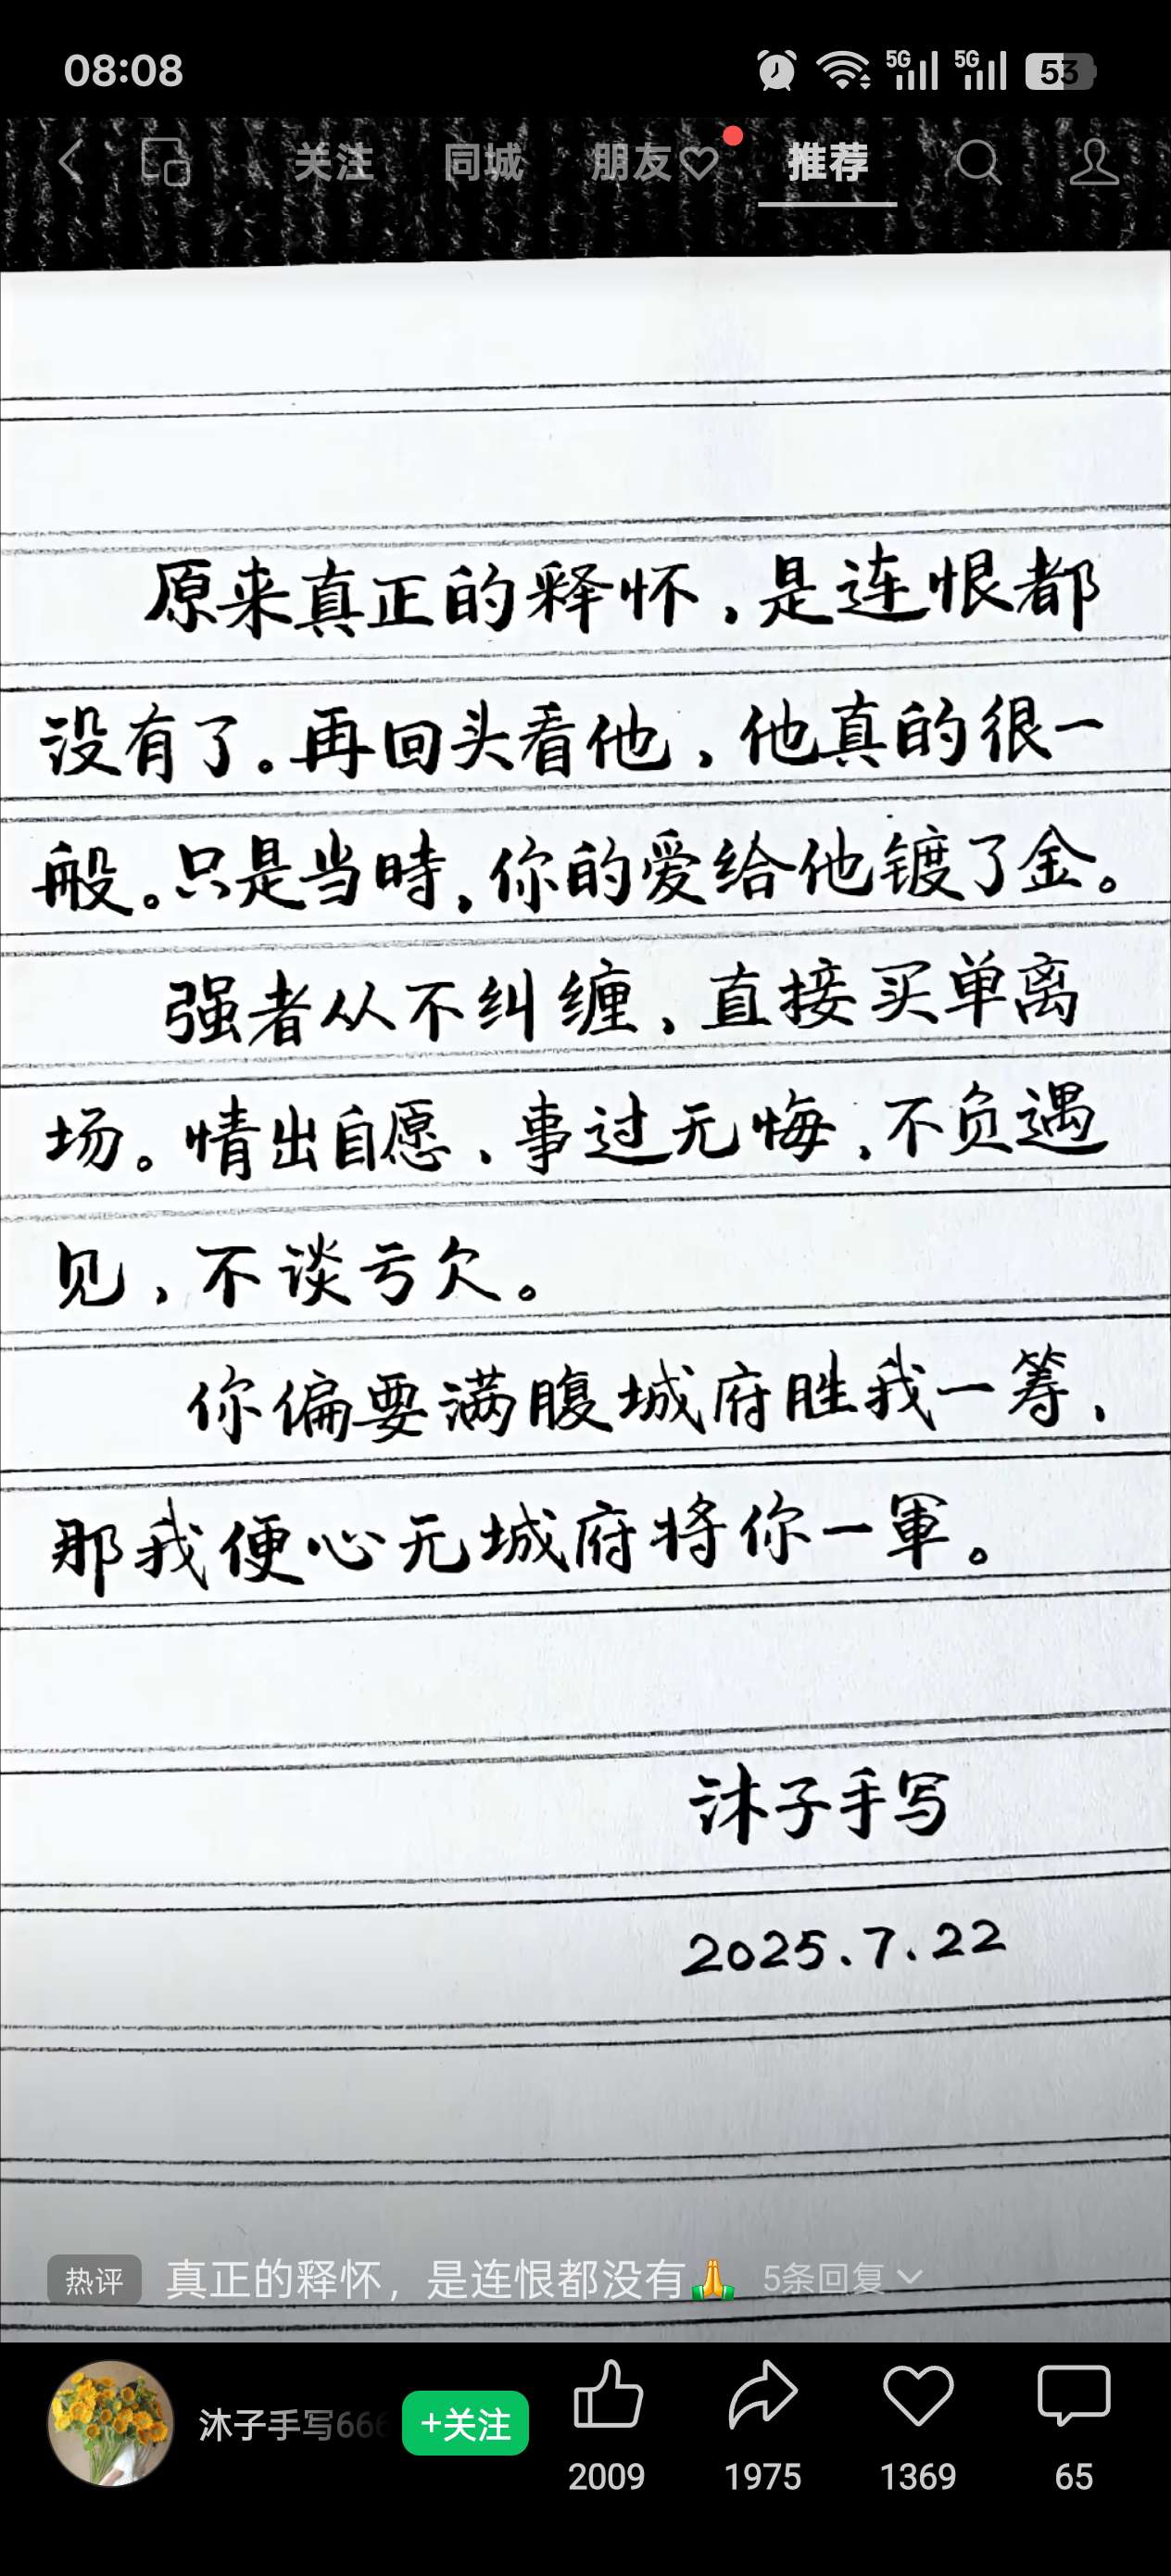 08:08
5G 5G 53
关注 同城 朋友♡ 推荐
原来真正的释怀,是连恨都
没有了。再回头看他,他真的很一
般。只是当時,你的爱给他镀了金。
强者从不纠缠、直接买单离
场。情出自愿、事过无悔,不负遇
见,不谈亏欠。
你偏要满腹城府胜我一筹、
那我便心无城府将你一軍。
沐子手写
2025.7.22
热评 真正的释怀，是连恨都没有🙏 5条回复
沐子手写666 +关注
2009 1975 1369 65